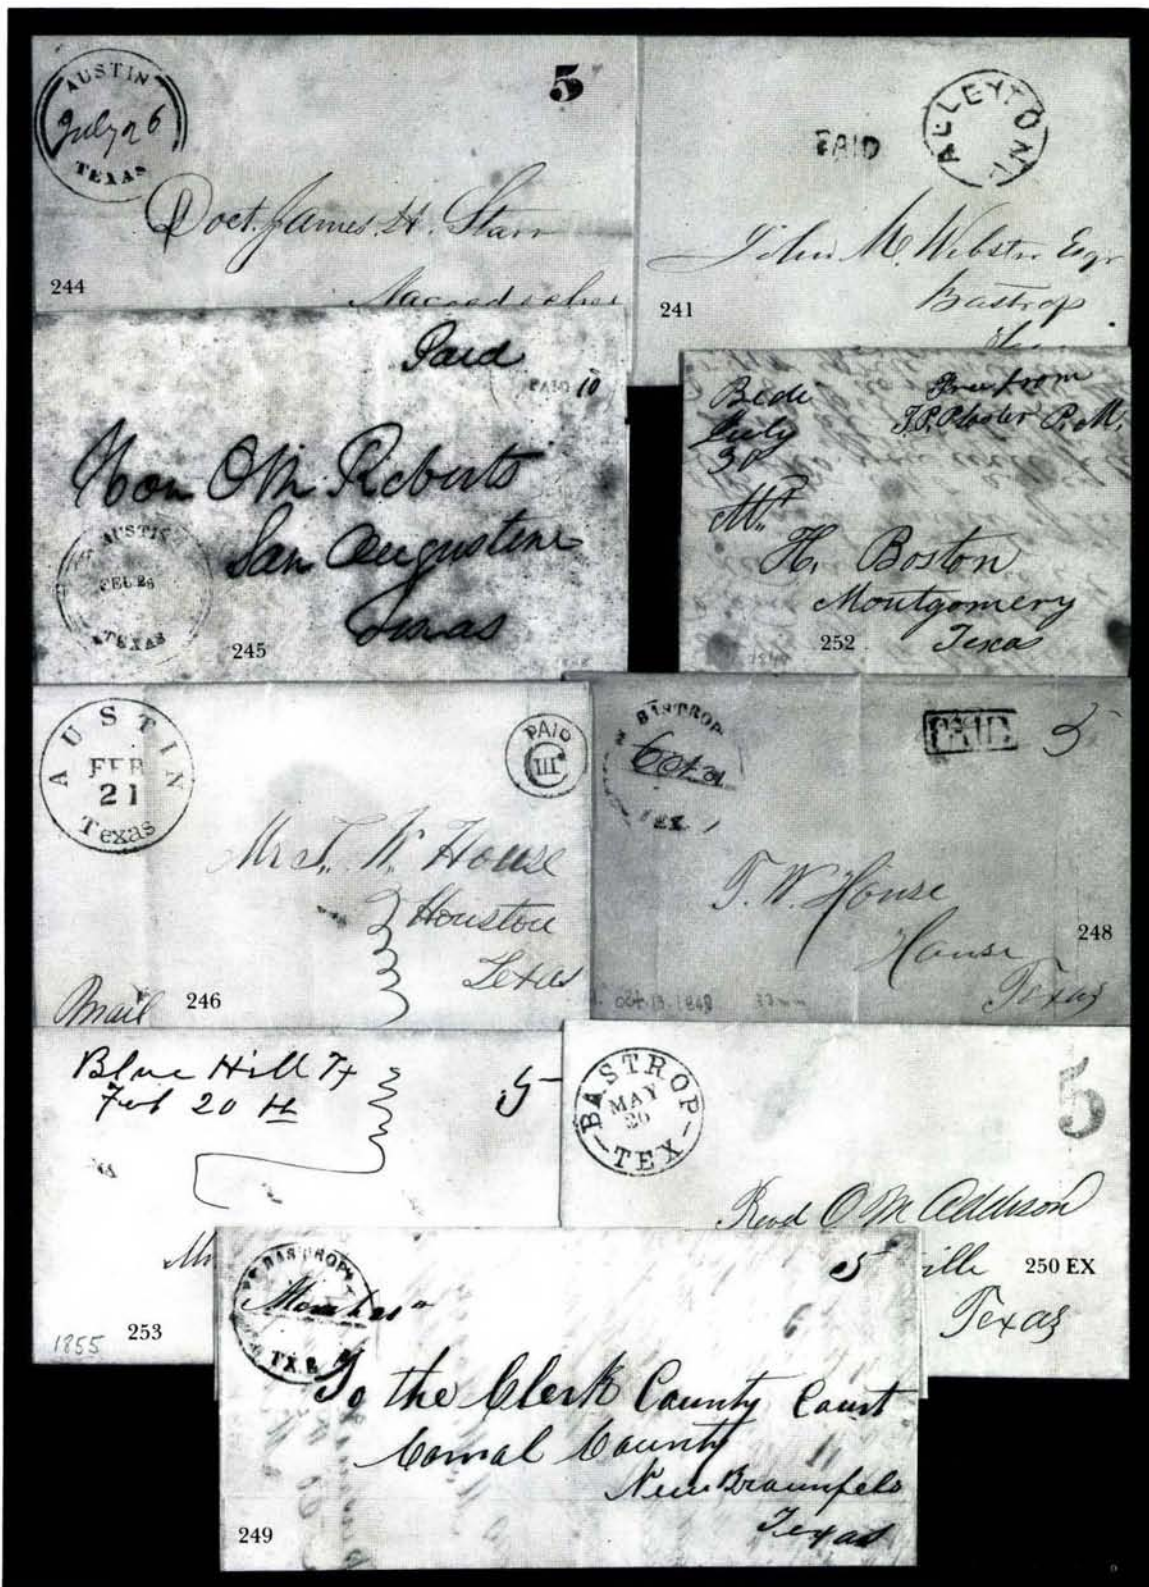 AUSTIN
July 26
TEXAS
5
Doct. James H. Starr
Nacogdoches
244
ALLEYTON
PAID
John M. Webster Esqr
Bastrop
241
Paid
PAID 10
Hon O M Roberts
San Augustine
Texas
AUSTIN
FEB 26
TEXAS
245
Bedi
July
30
Free from
J.P. Plaster P.M.
Mr
H. Boston
Montgomery
Texas
252
AUSTIN
FEB
21
Texas
PAID
III
Mr T. W. House
Houston
Texas
Mail
246
BASTROP
Oct 21
TEX
PAID
5
T. W. House
Texas
248
Oct. 13. 1849 33mm
Blue Hill Tx
Feb 20th
5
Mr
1855
253
BASTROP
MAY
26
TEX
5
Revd O M Addison
ille
Texas
250 EX
BASTROP
TX
5
To the Clerk County Court
Comal County
New Braunfels
Texas
249